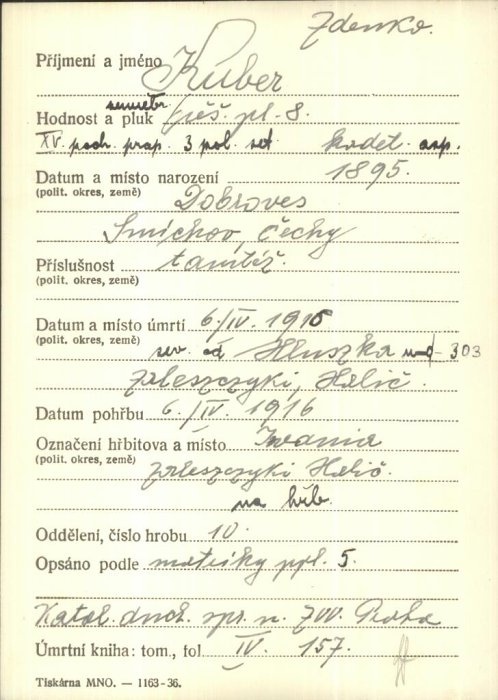 Zdenko.
Příjmení a jméno Kuber
Hodnost a pluk pěš. pl. 8.
XV. poch. prap. 3 pol. set. kadet. asp.
Datum a místo narození 1895.
(polit. okres, země) Dobroves
Smíchov, Čechy
Příslušnost tamtéž.
(polit. okres, země)
Datum a místo úmrtí 6./IV. 1916
(polit. okres, země) sev. od Hluszka 303
Zaleszczyki, Halič.
Datum pohřbu 6./IV. 1916
Označení hřbitova a místo Iwania
(polit. okres, země) Zaleszczyki Halič.
na hřb.
Oddělení, číslo hrobu 10.
Opsáno podle matriky ppl. 5.
Katol. duch. spr. n. ZVV. Praha
Úmrtní kniha: tom., fol IV. 157.
Tiskárna MNO. — 1163-36.